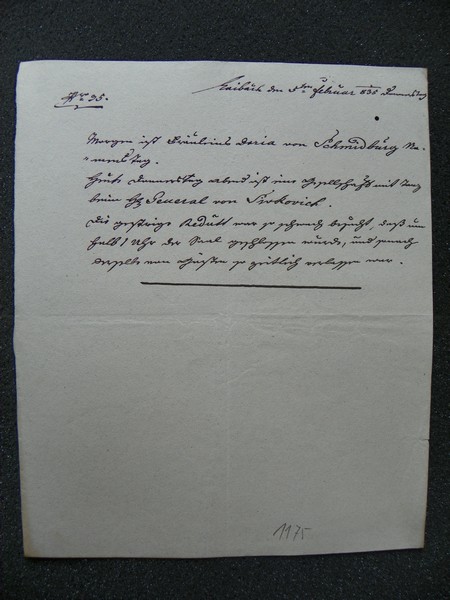 Nr 35.
Laibach den 5ten Februar 835 Donnerstag
Morgen ist Fräuleins Doria von Schmidburg Na-
mens Tag.
Heute Donnerstag abend ist eine Gesellschaft mit Tanz
beim General von Sivkovich.
Die gestrige Redutt war so schwach besucht, daß um
halb 1 Uhr der Saal geschlossen wurde, und
derselbe von Gästen so zeitlich verlassen war.
1175